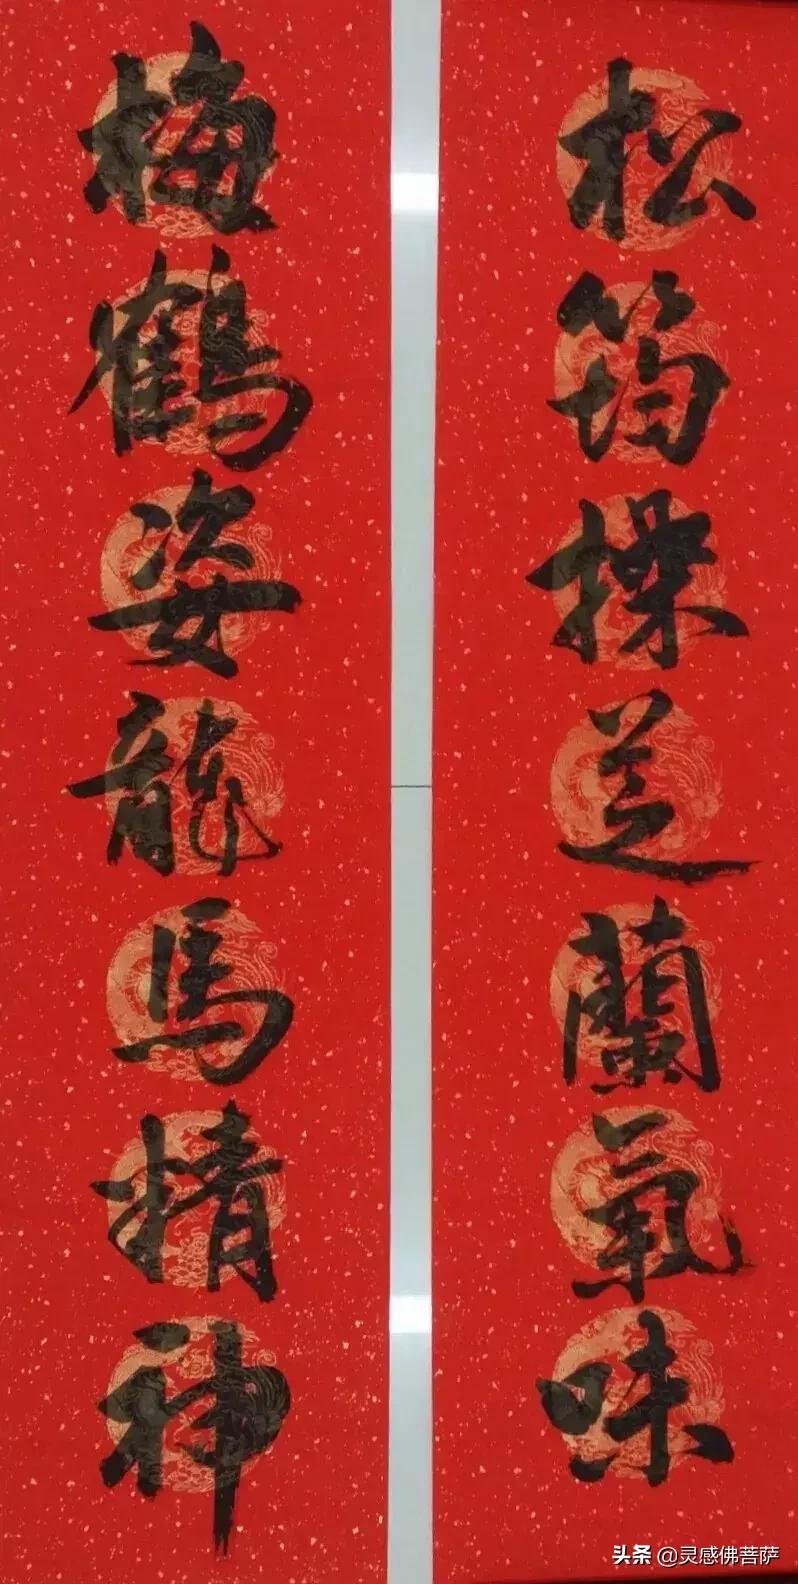 松筠操芝蘭氣味
梅鶴姿龍馬精神
头条 @灵感佛菩萨